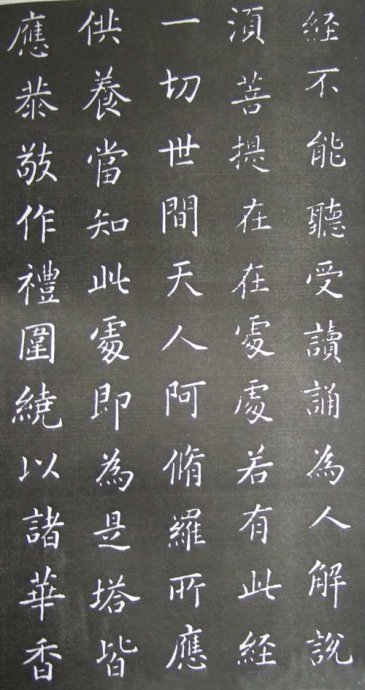 經不能聽受讀誦為人解說
須菩提在在處處若有此經
一切世間天人阿脩羅所應
供養當知此處即為是塔皆
應恭敬作禮圍繞以諸華香